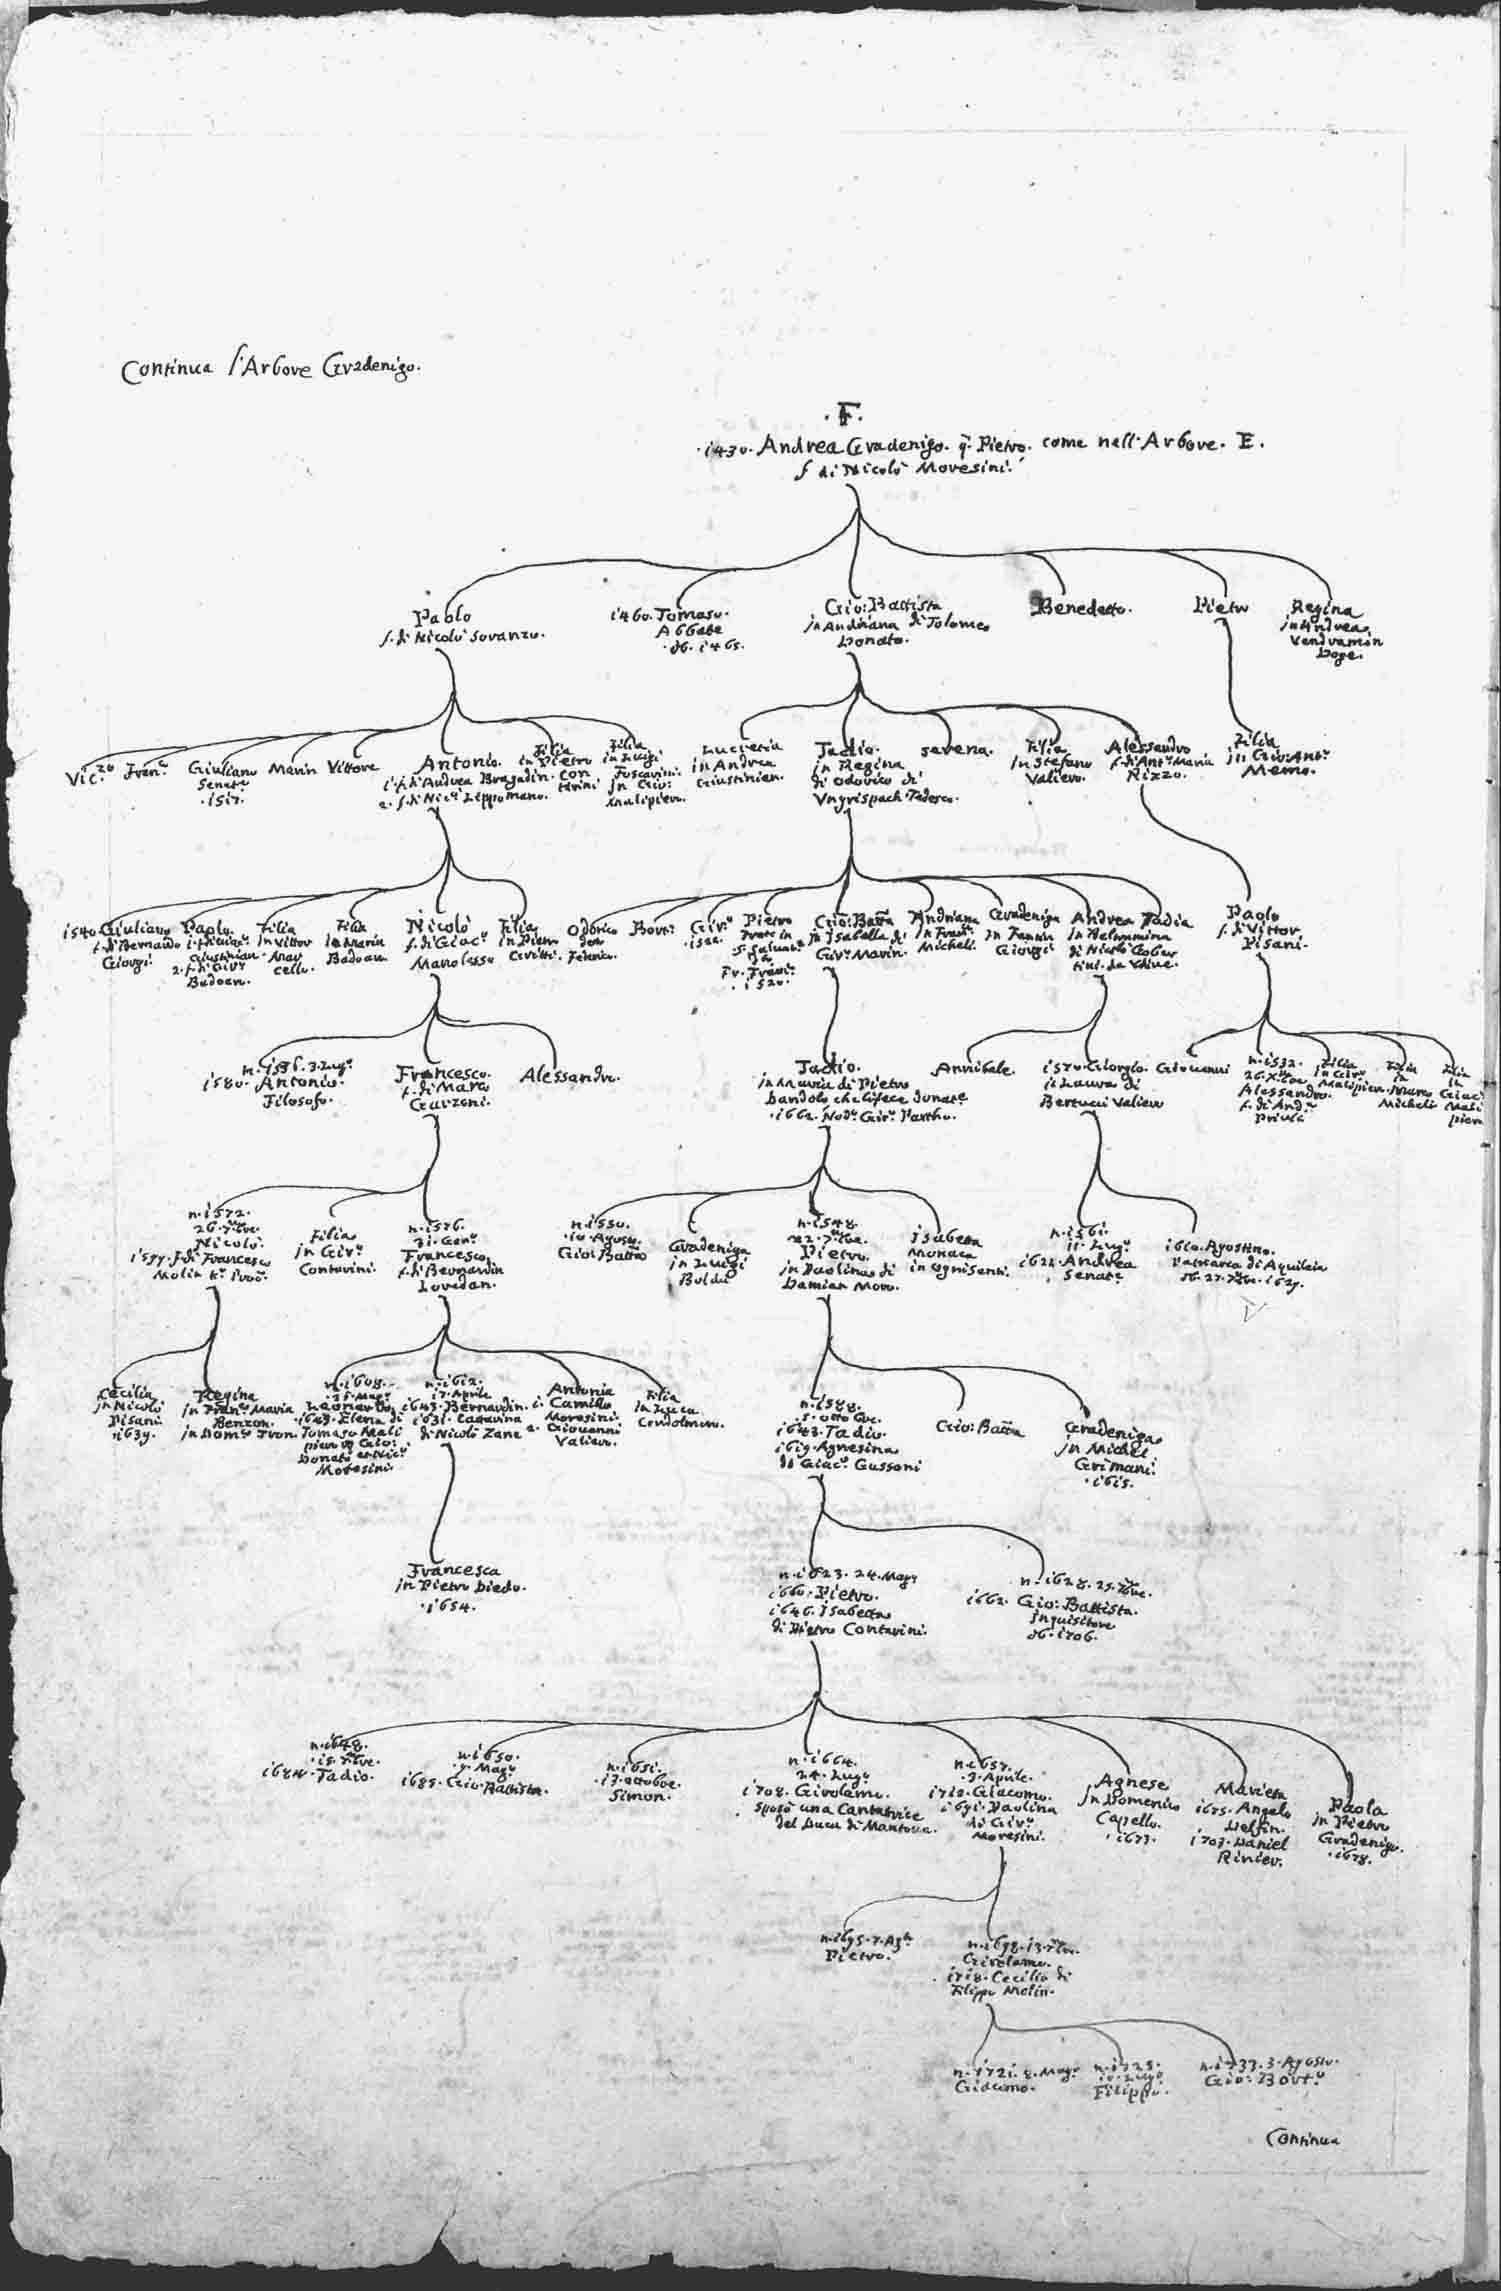 Continua l'Arbore Gradenigo.
.F.
.1430. Andrea Gradenigo. q. Pietro. come nell'Arbore. E.
f di Nicolò Moresini.
Paolo
f. di Nicolò Soranzo.
1460. Tomaso.
Abbate
.ob. 1465.
Gio: Battista
in Andriana di Tolomeo
Donato.
Benedetto.
Pietro
Regina
in Andrea
Vendramin
Doge.
Vic.zo
Fran.co
Giuliano
Senat.e
.1517.
Marin
Vittore
Antonio.
1. f. di Andrea Bragadin.
2. f. di Nic.o Lippomano.
Filia
in Pietro
Con
tarini
Filia
in Luigi
Foscarini.
in Gio:
Malipiero.
Lucietta
in Andrea
Giustinian.
Tadio.
in Regina
di Odorico di
Vngrispach Tedesco.
Serena.
Filia
in Stefano
Valiero.
Alessandro
f. di Ant.o Maria
Rizzo.
Filia
in Gio: Ant.o
Memo.
1540. Giuliano
f. di Bernardo
Giorgi
Paolo.
Giustinian.
2. f. di Gir.o
Badoer.
Filia
in Vittor
Mar
cello.
Filia
in Maria
Badoer.
Nicolò
f. di Giac.o
Manolesso
Filia
in Pietro
Gritti.
Odorico
Bort.o
Gir.o
.1522.
Pietro
Frate in
S. Salvat.e
Fr. Fran.co
.1520.
Gio: Batta
in Isabella di
Gir.o Marin.
Andriana
in Fran.co
Micheli.
Gradeniga
in Fantin
Giorgi
Andrea
in Beltramina
di Nicolò Gober
tini. da Udine.
Tadia
Paolo
f. di Vittor
Pisani.
n. 1536. 3. Lug.o
1580. Antonio.
Filosofo.
Francesco.
f. di Marc
Garzoni.
Alessandro.
Tadio.
in Maria di Pietro
Dandolo che li fece donat.e
.1662. Nod.o Gir.o Partho.
Annibale.
1570. Giorgio.
in Laura di
Bertucci Valier
Giovanni
n. 1532.
26. Xbre
Alessandro.
f. di And.a
Priuli
Filia
in Gir.o
Malipiero.
Filia
in
Marco
Micheli
Filia
in
Giac.o
Mali
piero
n. 1572.
26. 7bre.
Nicolò.
1597. f. di Francesco
Molin K.r Proc.r
Filia
in Gir.o
Contarini.
n. 1576.
31. Gen.o
Francesco.
f. di Bernardin
Loredan.
n. 1550.
.10. Agosto.
Gio: Batta
Gradeniga
in Luigi
Boldù
n. 1548.
22. 7bre.
Pietro.
in Paolina di
Damian Moro.
Isabetta
Monaca
in Ognisanti.
n. 1561.
11. Lug.o
1622. Andrea
Senat.e
1610. Agostino.
Patriarca di Aquileia
ob. 27. 7bre. 1629.
Cecilia
in Nicolò
Pisani
.1639.
Regina
in Fran.co Maria
Benzon.
in Dom.o Tron.
n. 1608.
.25. Mag.o
Leonardo
.1643. Elena di
Tomaso Mali
piero
Donato
Moresini.
n. 1612.
17. Aprile
1643. Bernardin.
1631. Cattarina
di Nicolò Zane
Antonia
1. Camillo
Moresini.
2. Giovanni
Valiero.
Filia
in Luca
Condolmer.
n. 1588.
.5. Ottobre.
1643. Tadio.
1619. Agnesina
di Giac.o Gussoni
Gio: Batta
Gradeniga
in Michiel
Grimani.
.1615.
Francesca
in Pietro Diedo.
.1654.
n. 1623. 24. Mag.o
1660. Pietro.
1646. Isabetta
di Pietro Contarini.
n. 1628. 25. 7bre.
1662. Gio: Battista.
Inquisitore
ob. 1706.
n. 1648.
.15. 7bre.
1684. Tadio.
n. 1650.
.7. Mag.o
1685. Gio: Battista.
n. 1651.
.13. Ottobre.
Simon.
n. 1664.
24. Lug.o
1708. Girolamo.
Sposò una Cantatrice
del Duca di Mantova.
n. 1657.
.3. Aprile.
1712. Giacomo.
1691. Paolina
di Gir.o
Moresini.
Agnese
in Domenico
Capello.
.1673.
Marietta
1675. Angelo
Delfin.
1703. Daniel
Renier.
Paola
in Pietro
Gradenigo.
.1678.
n. 1695. 7. Ag.to
Pietro.
n. 1698. 13. 7bre.
Girolamo.
.1718. Cecilia di
Filippo Molin.
n. 1721. 8. Mag.o
Giacomo.
n. 1725.
10. Lug.o
Filippo.
n. 1733. 3. Agosto.
Gio: Bort.o
Continua